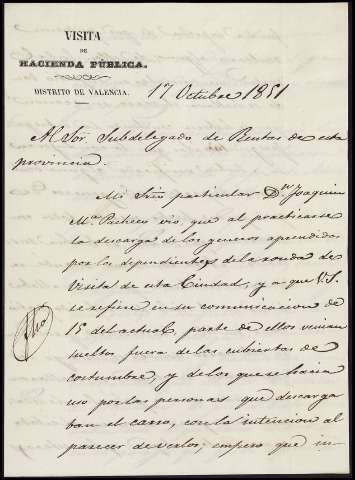 VISITA
DE
HACIENDA PÚBLICA.
DISTRITO DE VALENCIA.
17 Octubre 1851
Al Sor. Subdelegado de Rentas de esta
provincia.
Mi Srio particular Dn. Joaquin
Ma. Pacheco vio, que al practicarse
la descarga de los generos aprendidos
por los dependientes de la ronda de
Visita de esta Ciudad, y a que V.S.
se refiere en su comunicacion de
15 del actual, parte de ellos venian
sueltos fuera de las cubiertas de
costumbre, y de los que se hacia
uso por las personas que descarga
ban el carro, con la intencion al
parecer de verlos; empero que in-